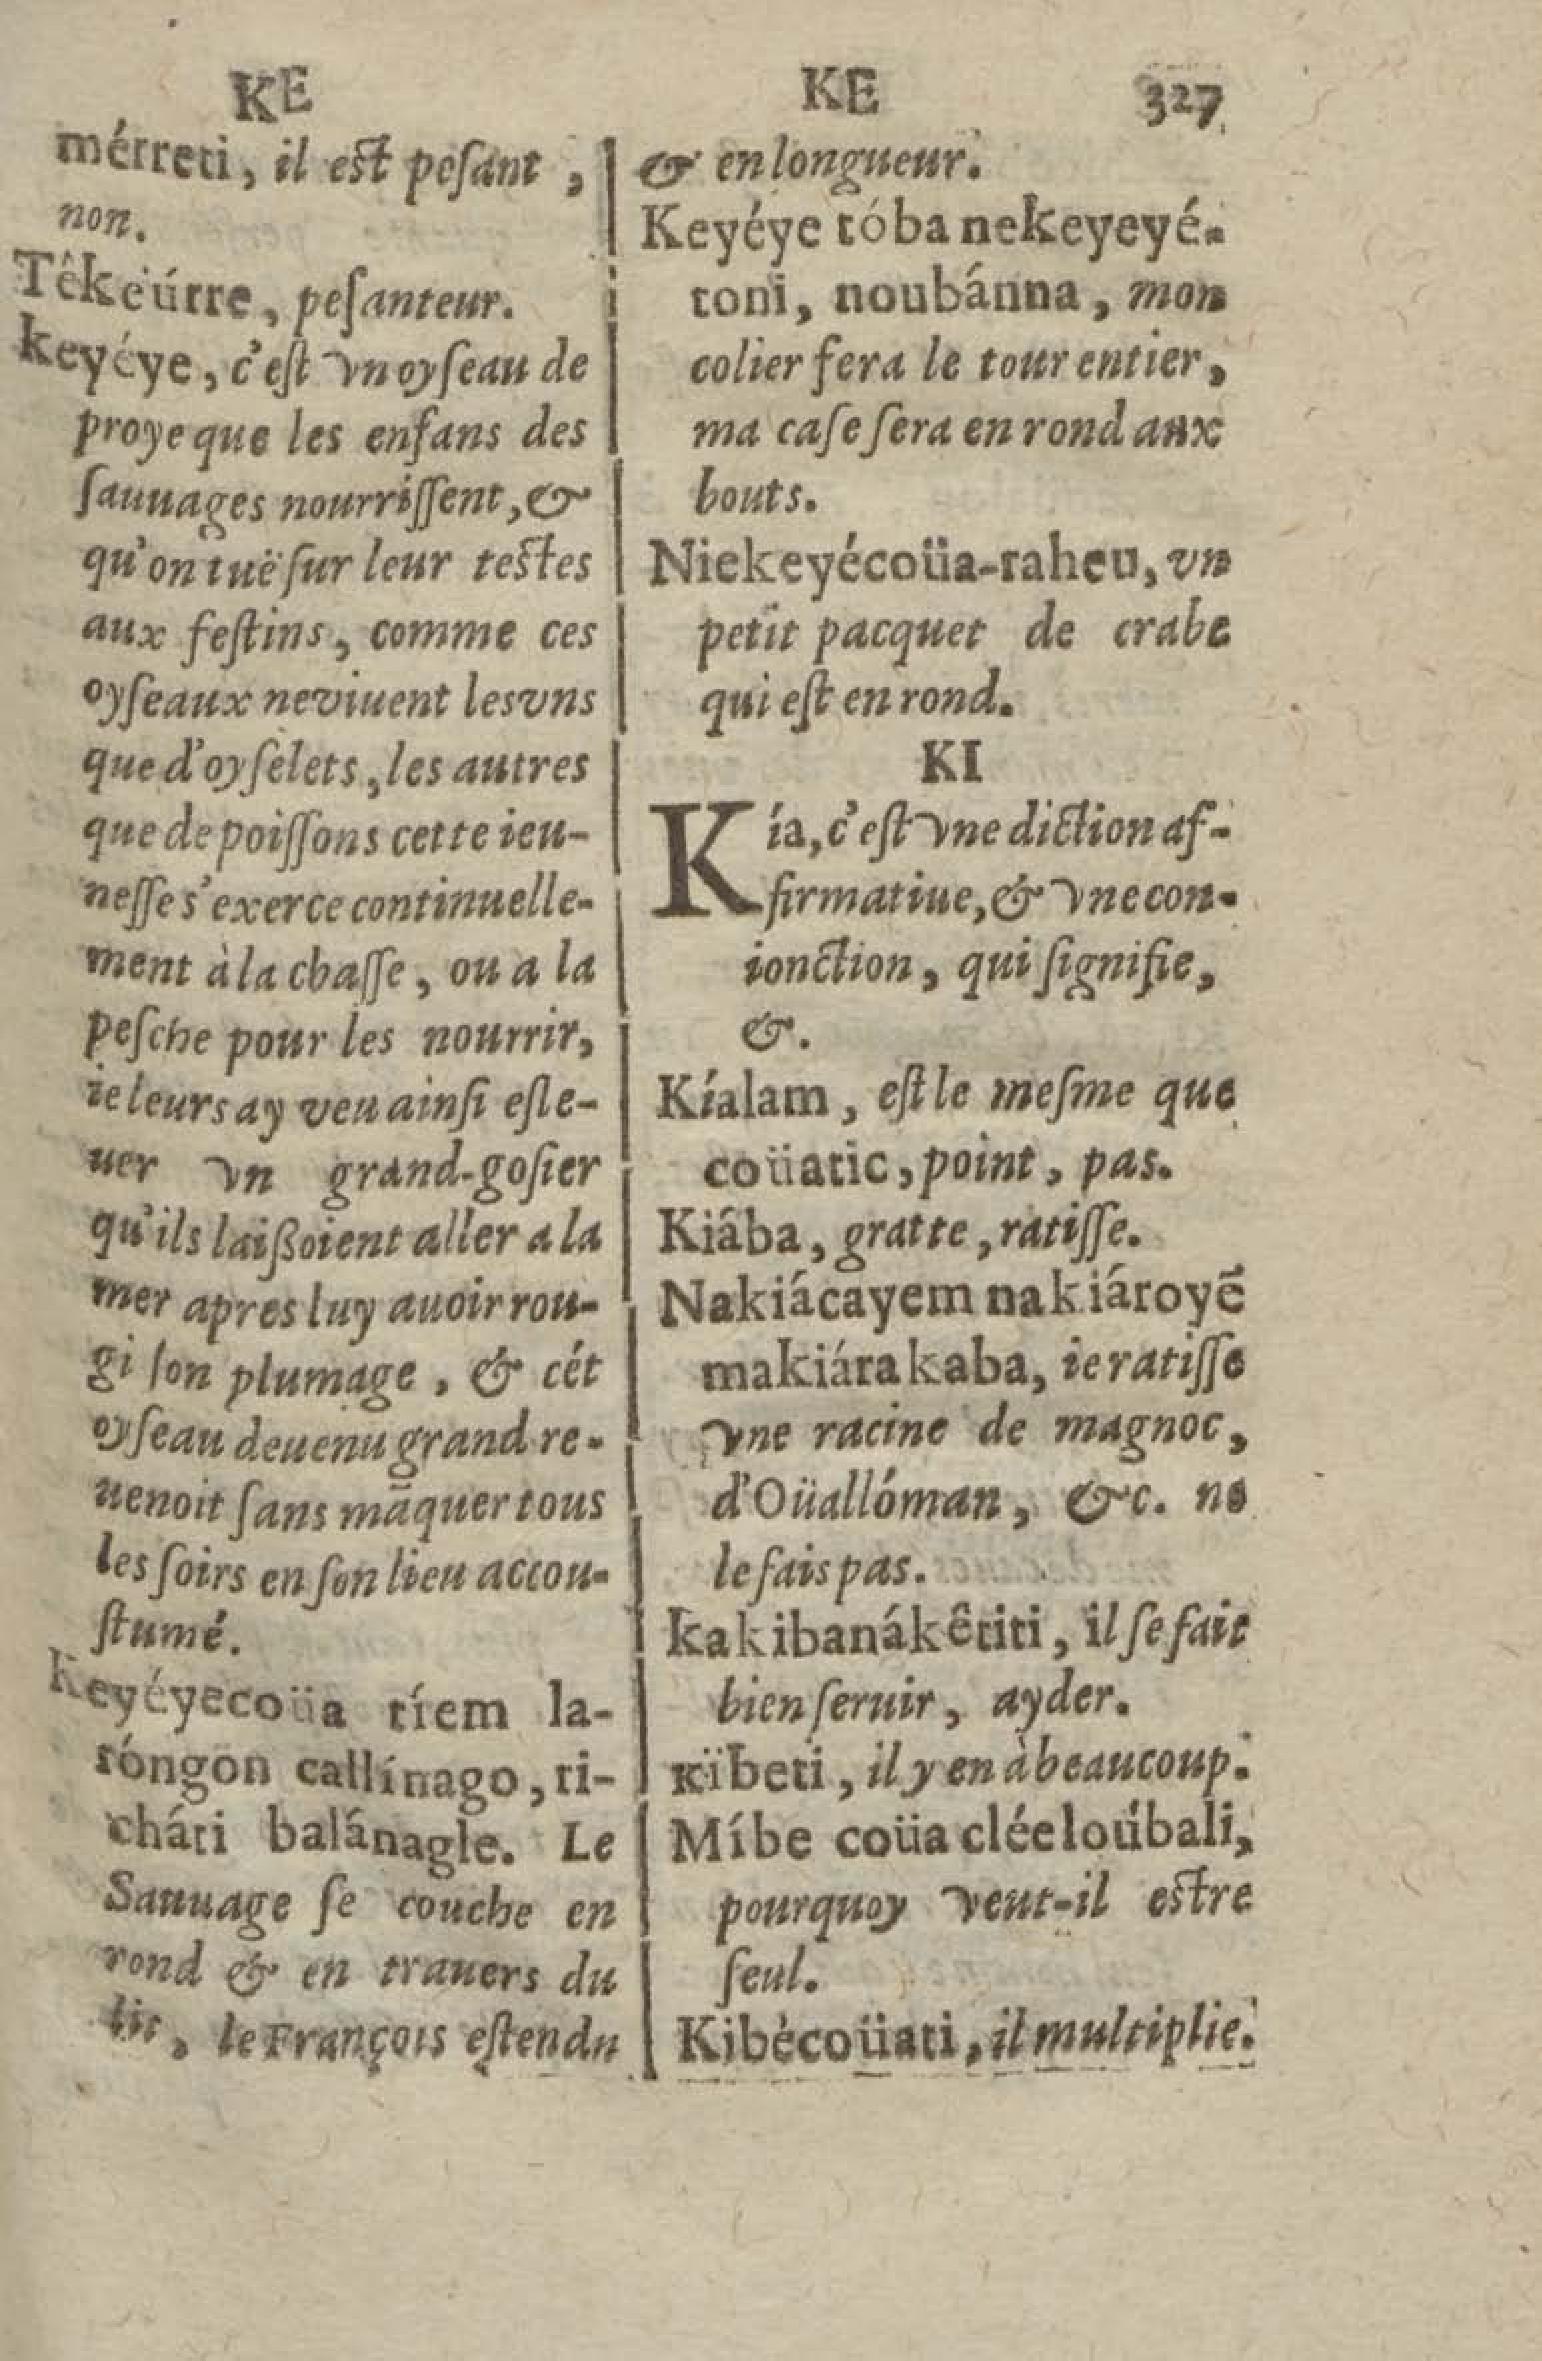 KE
mérreti, il est peſant,
non.
Têkeúrre, peſanteur.
keyéye, c'eſt vn oyſeau de
proye que les enfans des
ſauuages nourriſſent, &
qu'on tuë ſur leur testes
aux feſtins, comme ces
oyſeaux ne viuent les vns
que d'oyſelets, les autres
que de poiſſons cette ieu-
neſſe s'exerce continuelle-
ment à la chaſſe, ou a la
peſche pour les nourrir,
ie leurs ay veu ainſi eſle-
uer vn grand-goſier
qu'ils laißoient aller a la
mer apres luy auoir rou-
gi ſon plumage, & cét
oyſeau deuenu grand re-
uenoit ſans māquer tous
les ſoirs en ſon lieu accou-
ſtumé.
Keyéyecoüa tíem la-
róngon callínago, ti-
cháti balánagle. Le
Sauuage ſe couche en
rond & en trauers du
lit, le François eſtendu
KE 327
& en longueur.
Keyéye tóba nekeyeyé-
toni, noubánna, mon
colier fera le tour entier,
ma caſe ſera en rond aux
bouts.
Niekeyécoüa-raheu, vn
petit pacquet de crabe
qui eſt en rond.
KI
Kía, c'eſt vne diction af-
firmatiue, & vne con-
ionction, qui ſignifie,
&.
Kíalam, eſt le meſme que
coüatic, point, pas.
Kiába, gratte, ratiſſe.
Nakiácayem nakiároyē
makiárakaba, ie ratiſſe
vne racine de magnoc,
d'Oüallóman, &c. ne
le fais pas.
kakibanákêtiti, il ſe fait
bien ſeruir, ayder.
κïbeti, il y en à beaucoup.
Míbe coüa clée loúbali,
pourquoy veut-il estre
ſeul.
Kibécoüati, il multiplie.